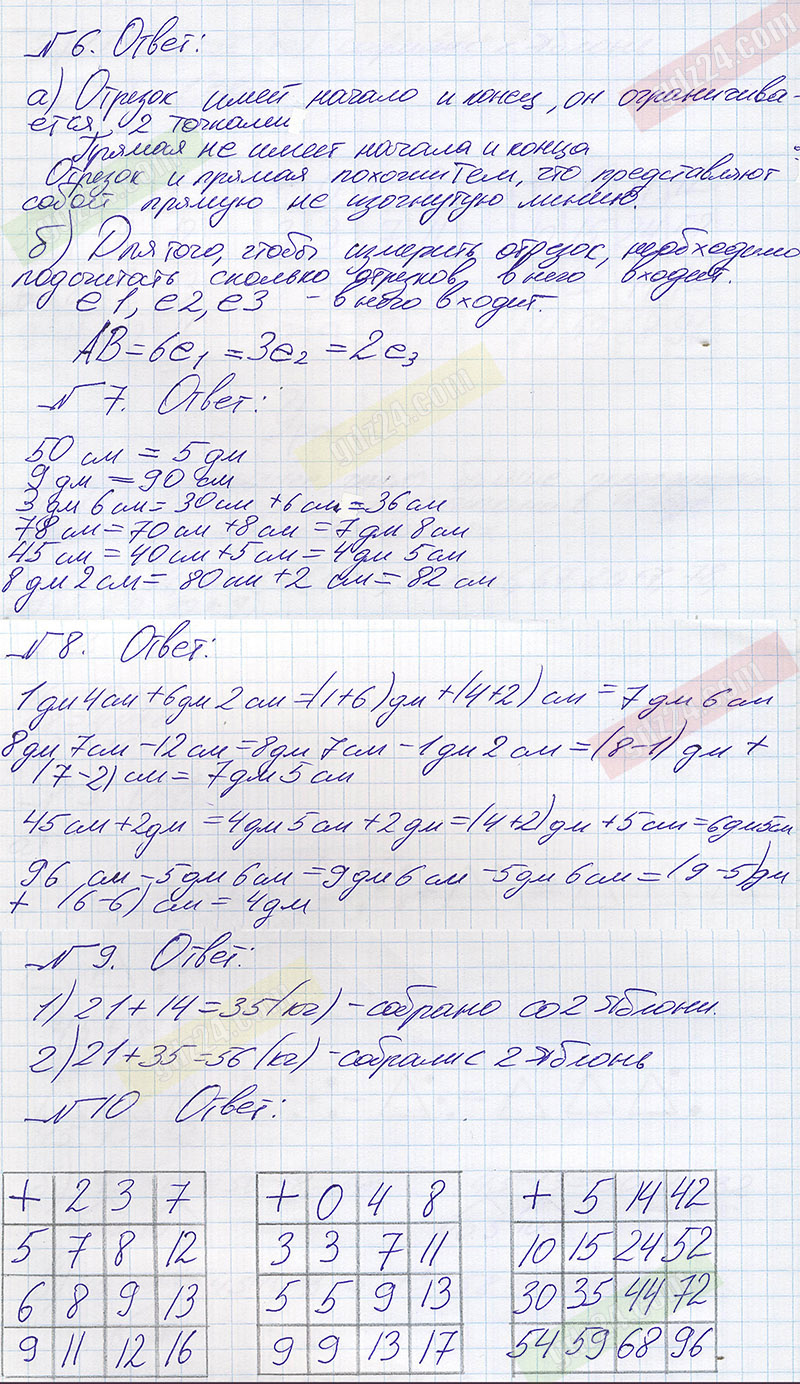 № 6. Ответ:
а) Отрезок имеет начало и конец, он ограничива-
ется, 2 точками
Прямая не имеет начала и конца
Отрезок и прямая похожи тем, что представляют
собой прямую не изогнутую линию.
б) Для того, чтобы измерить отрезок, необходимо
подсчитать сколько отрезков в него входит.
e1, e2, e3 - в него входит.
AB = 6e₁ = 3e₂ = 2e₃
№ 7. Ответ:
50 см = 5 дм
9 дм = 90 см
3 дм 6 см = 30 см + 6 см = 36 см
78 см = 70 см + 8 см = 7 дм 8 см
45 см = 40 см + 5 см = 4 дм 5 см
8 дм 2 см = 80 см + 2 см = 82 см
№ 8. Ответ:
1 дм 4 см + 6 дм 2 см = (1+6) дм + (4+2) см = 7 дм 6 см
8 дм 7 см - 12 см = 8 дм 7 см - 1 дм 2 см = (8-1) дм +
(7-2) см = 7 дм 5 см
45 см + 2 дм = 4 дм 5 см + 2 дм = (4+2) дм + 5 см = 6 дм 5 см
96 см - 5 дм 6 см = 9 дм 6 см - 5 дм 6 см = (9-5) дм
+ (6-6) см = 4 дм
№ 9. Ответ:
1) 21 + 14 = 35 (кг) - собрано со 2 яблони.
2) 21 + 35 = 56 (кг) - собрали с 2 яблонь
№ 10 Ответ:
+ 2 3 7
5 7 8 12
6 8 9 13
9 11 12 16
+ 0 4 8
3 3 7 11
5 5 9 13
9 9 13 17
+ 5 14 42
10 15 24 52
30 35 44 72
54 59 68 96
gdz24.com
gdz24.com
gdz24.com
gdz24.com